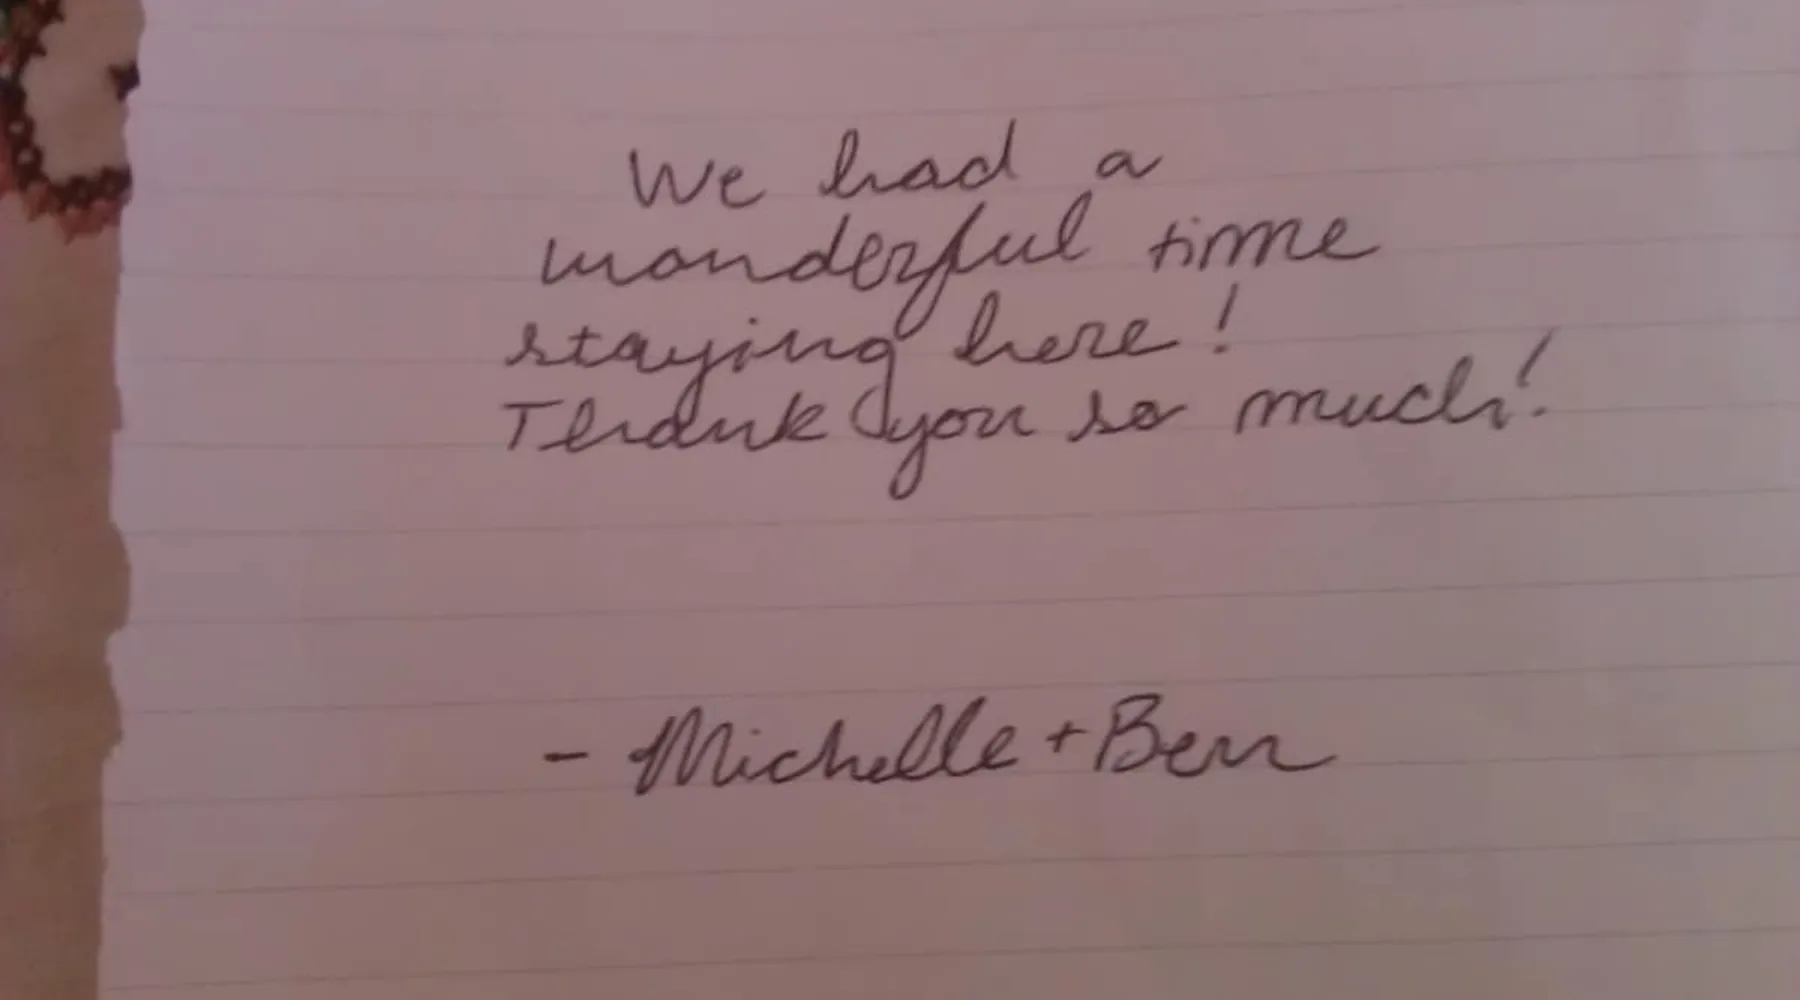 We had a
wonderful time
staying here!
Thank you so much!
- Michelle + Ben